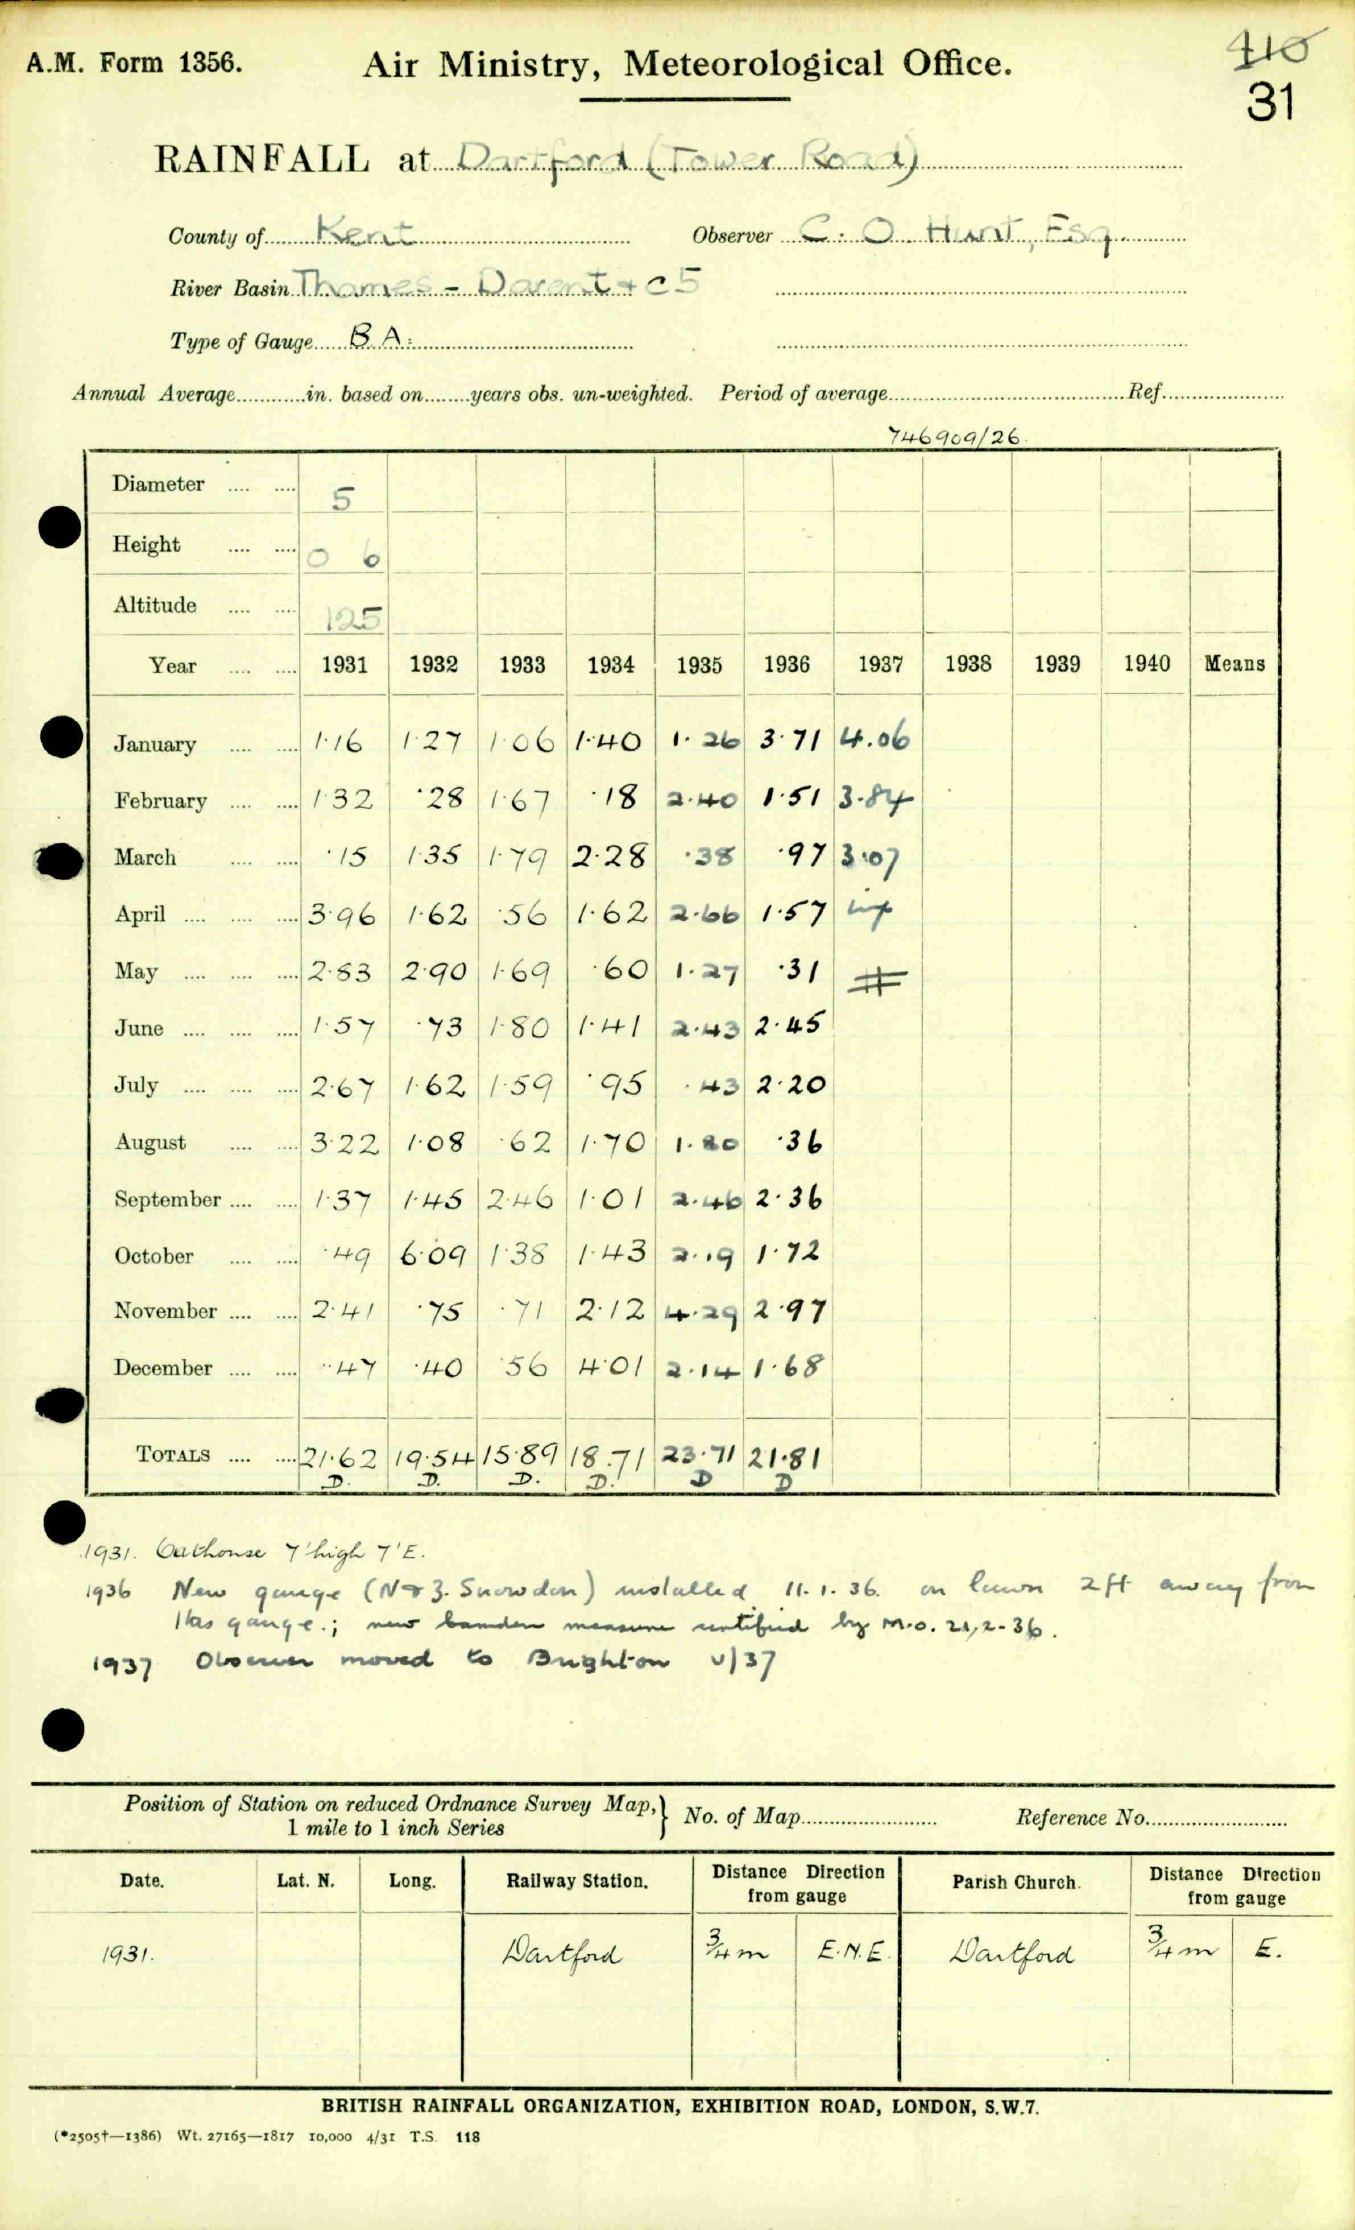 A.M. Form 1356.
Air Ministry, Meteorological Office.
410
31
RAINFALL at Dartford (Tower Road)
County of Kent Observer C. O. Hunt, Esq.
River Basin Thames - Darent + C5
Type of Gauge B.A:
Annual Average............in. based on........years obs. un-weighted. Period of average........Ref........
746909/26.
Diameter .... .... 5
Height .... .... 0 6
Altitude .... .... 125
Year .... .... 1931 1932 1933 1934 1935 1936 1937 1938 1939 1940 Means
January .... .... 1·16 1·27 1·06 1·40 1·26 3·71 4.06
February .... .... 1·32 ·28 1·67 ·18 2·40 1·51 3·84
March .... .... ·15 1·35 1·79 2·28 ·38 ·97 3·07
April .... .... .... 3·96 1·62 ·56 1·62 2·66 1·57
May .... .... .... 2·83 2·90 1·69 ·60 1·27 ·31
June .... .... .... 1·57 ·73 1·80 1·41 2·43 2·45
July .... .... .... 2·67 1·62 1·59 ·95 ·43 2·20
August .... .... 3·22 1·08 ·62 1·70 1·80 ·36
September .... .... 1·37 1·45 2·46 1·01 2·46 2·36
October .... .... ·49 6·09 1·38 1·43 2·19 1·72
November .... .... 2·41 ·75 ·71 2·12 4·29 2·97
December .... .... ·47 ·40 ·56 4·01 2·14 1·68
TOTALS .... .... 21·62 19·54 15·89 18.71 23·71 21·81
D. D. D. D. D D
1931. Outhouse 7' high 7' E.
1936 New gauge (N & Z. Snowdon) installed 11.1.36. on lawn 2ft away from
gauge.; new camden measure certified by M.O. 21.2.36.
1937 Observer moved to Brighton v/37
Position of Station on reduced Ordnance Survey Map,} No. of Map........ Reference No........
1 mile to 1 inch Series
Date. Lat. N. Long. Railway Station. Distance Direction from gauge Parish Church. Distance Direction from gauge
1931. Dartford ¾ m E.N.E. Dartford ¾ m E.
BRITISH RAINFALL ORGANIZATION, EXHIBITION ROAD, LONDON, S.W.7.
(*2505†—1386) Wt. 27165—1817 10,000 4/31 T.S. 118